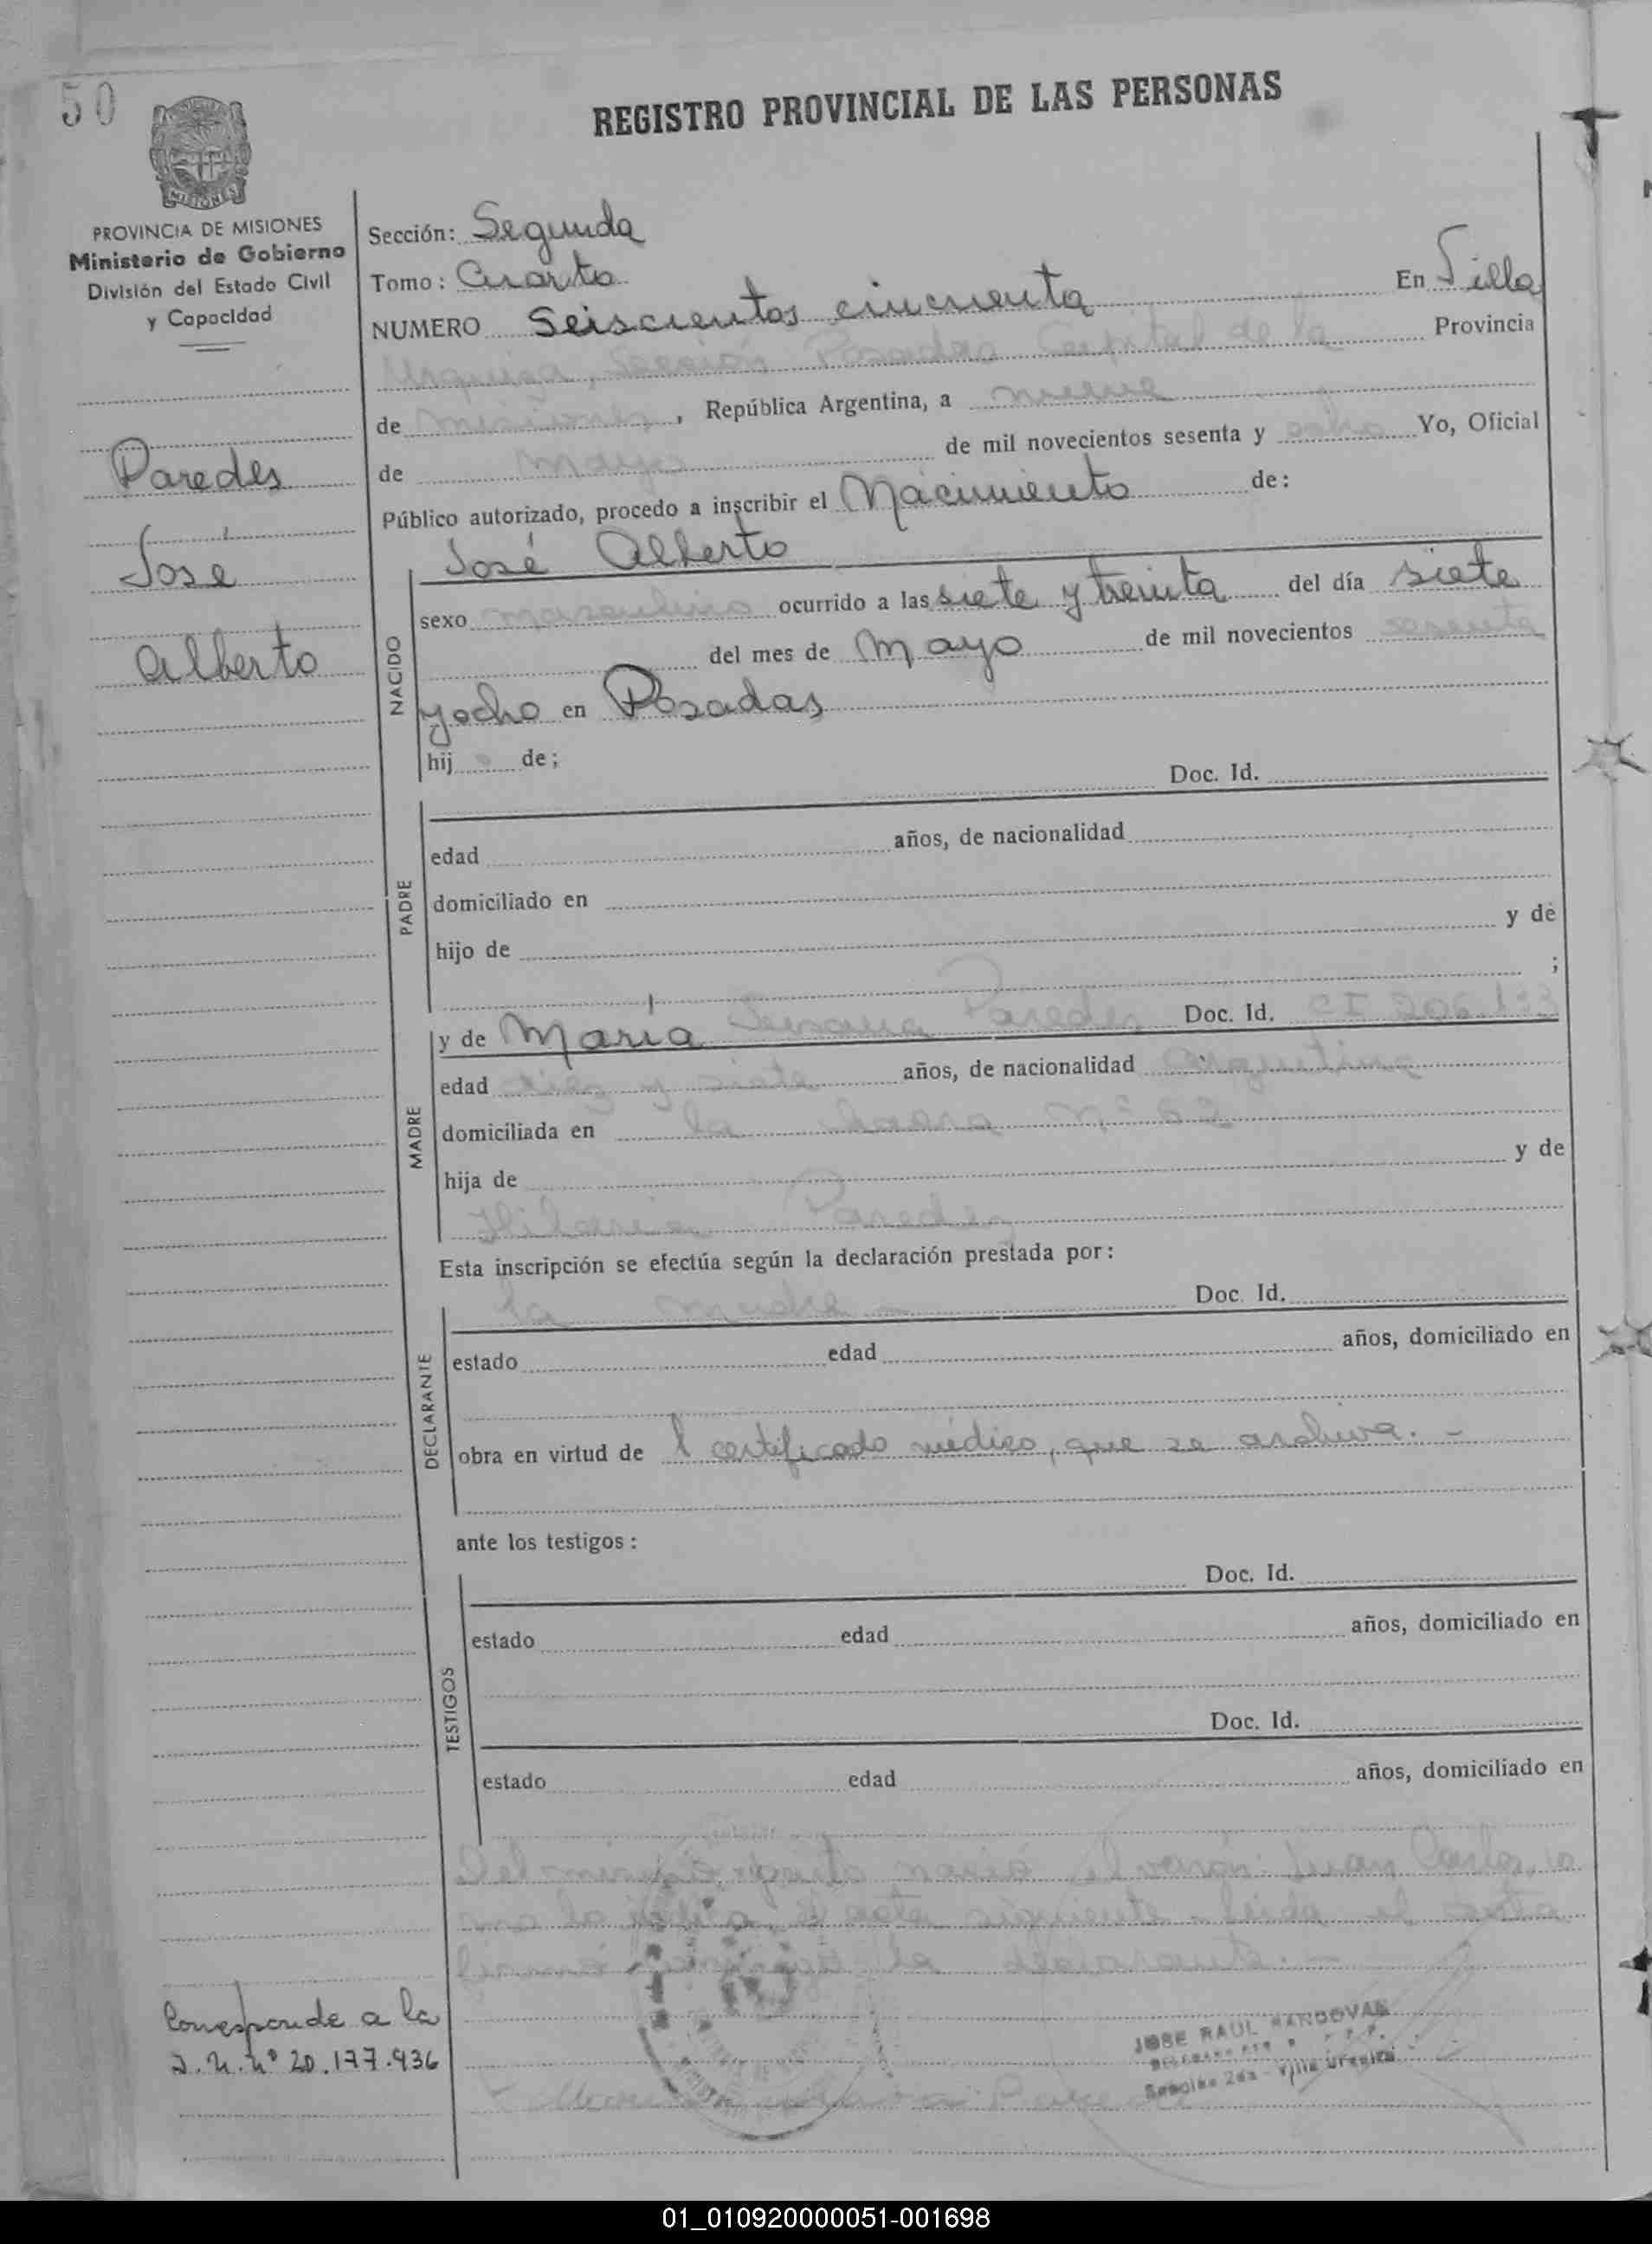 50
REGISTRO PROVINCIAL DE LAS PERSONAS
MISIONES
PROVINCIA DE MISIONES
Ministerio de Gobierno
División del Estado Civil
y Capacidad
Paredes
José
Alberto
Sección: Segunda
Tomo: Cuarto
NUMERO Seiscientos cincuenta En Villa
Urquiza, Sección Posadas Capital de la Provincia
de Misiones, República Argentina, a nueve
de mayo de mil novecientos sesenta y ocho Yo, Oficial
Público autorizado, procedo a inscribir el Nacimiento de:
José Alberto
NACIDO
sexo masculino ocurrido a las siete y treinta del día siete
del mes de Mayo de mil novecientos sesenta
y ocho en Posadas
hijo de;
PADRE
Doc. Id.
edad años, de nacionalidad
domiciliado en
hijo de y de
;
MADRE
y de María Paredes Doc. Id. CI
edad diez y siete años, de nacionalidad argentina
domiciliada en la
hija de y de
Hilaria Paredes
Esta inscripción se efectúa según la declaración prestada por:
DECLARANTE
la madre - Doc. Id.
estado edad años, domiciliado en
obra en virtud de l certificado médico, que se archiva. -
ante los testigos:
TESTIGOS
Doc. Id.
estado edad años, domiciliado en
Doc. Id.
estado edad años, domiciliado en
Del mismo parto nació el varón: Juan Carlos,
acta siguiente - Leida el acta
la declarante. -
Corresponde a la
20.177.936
JOSE RAUL
Sección 2da - Villa Urquiza
01_010920000051-001698